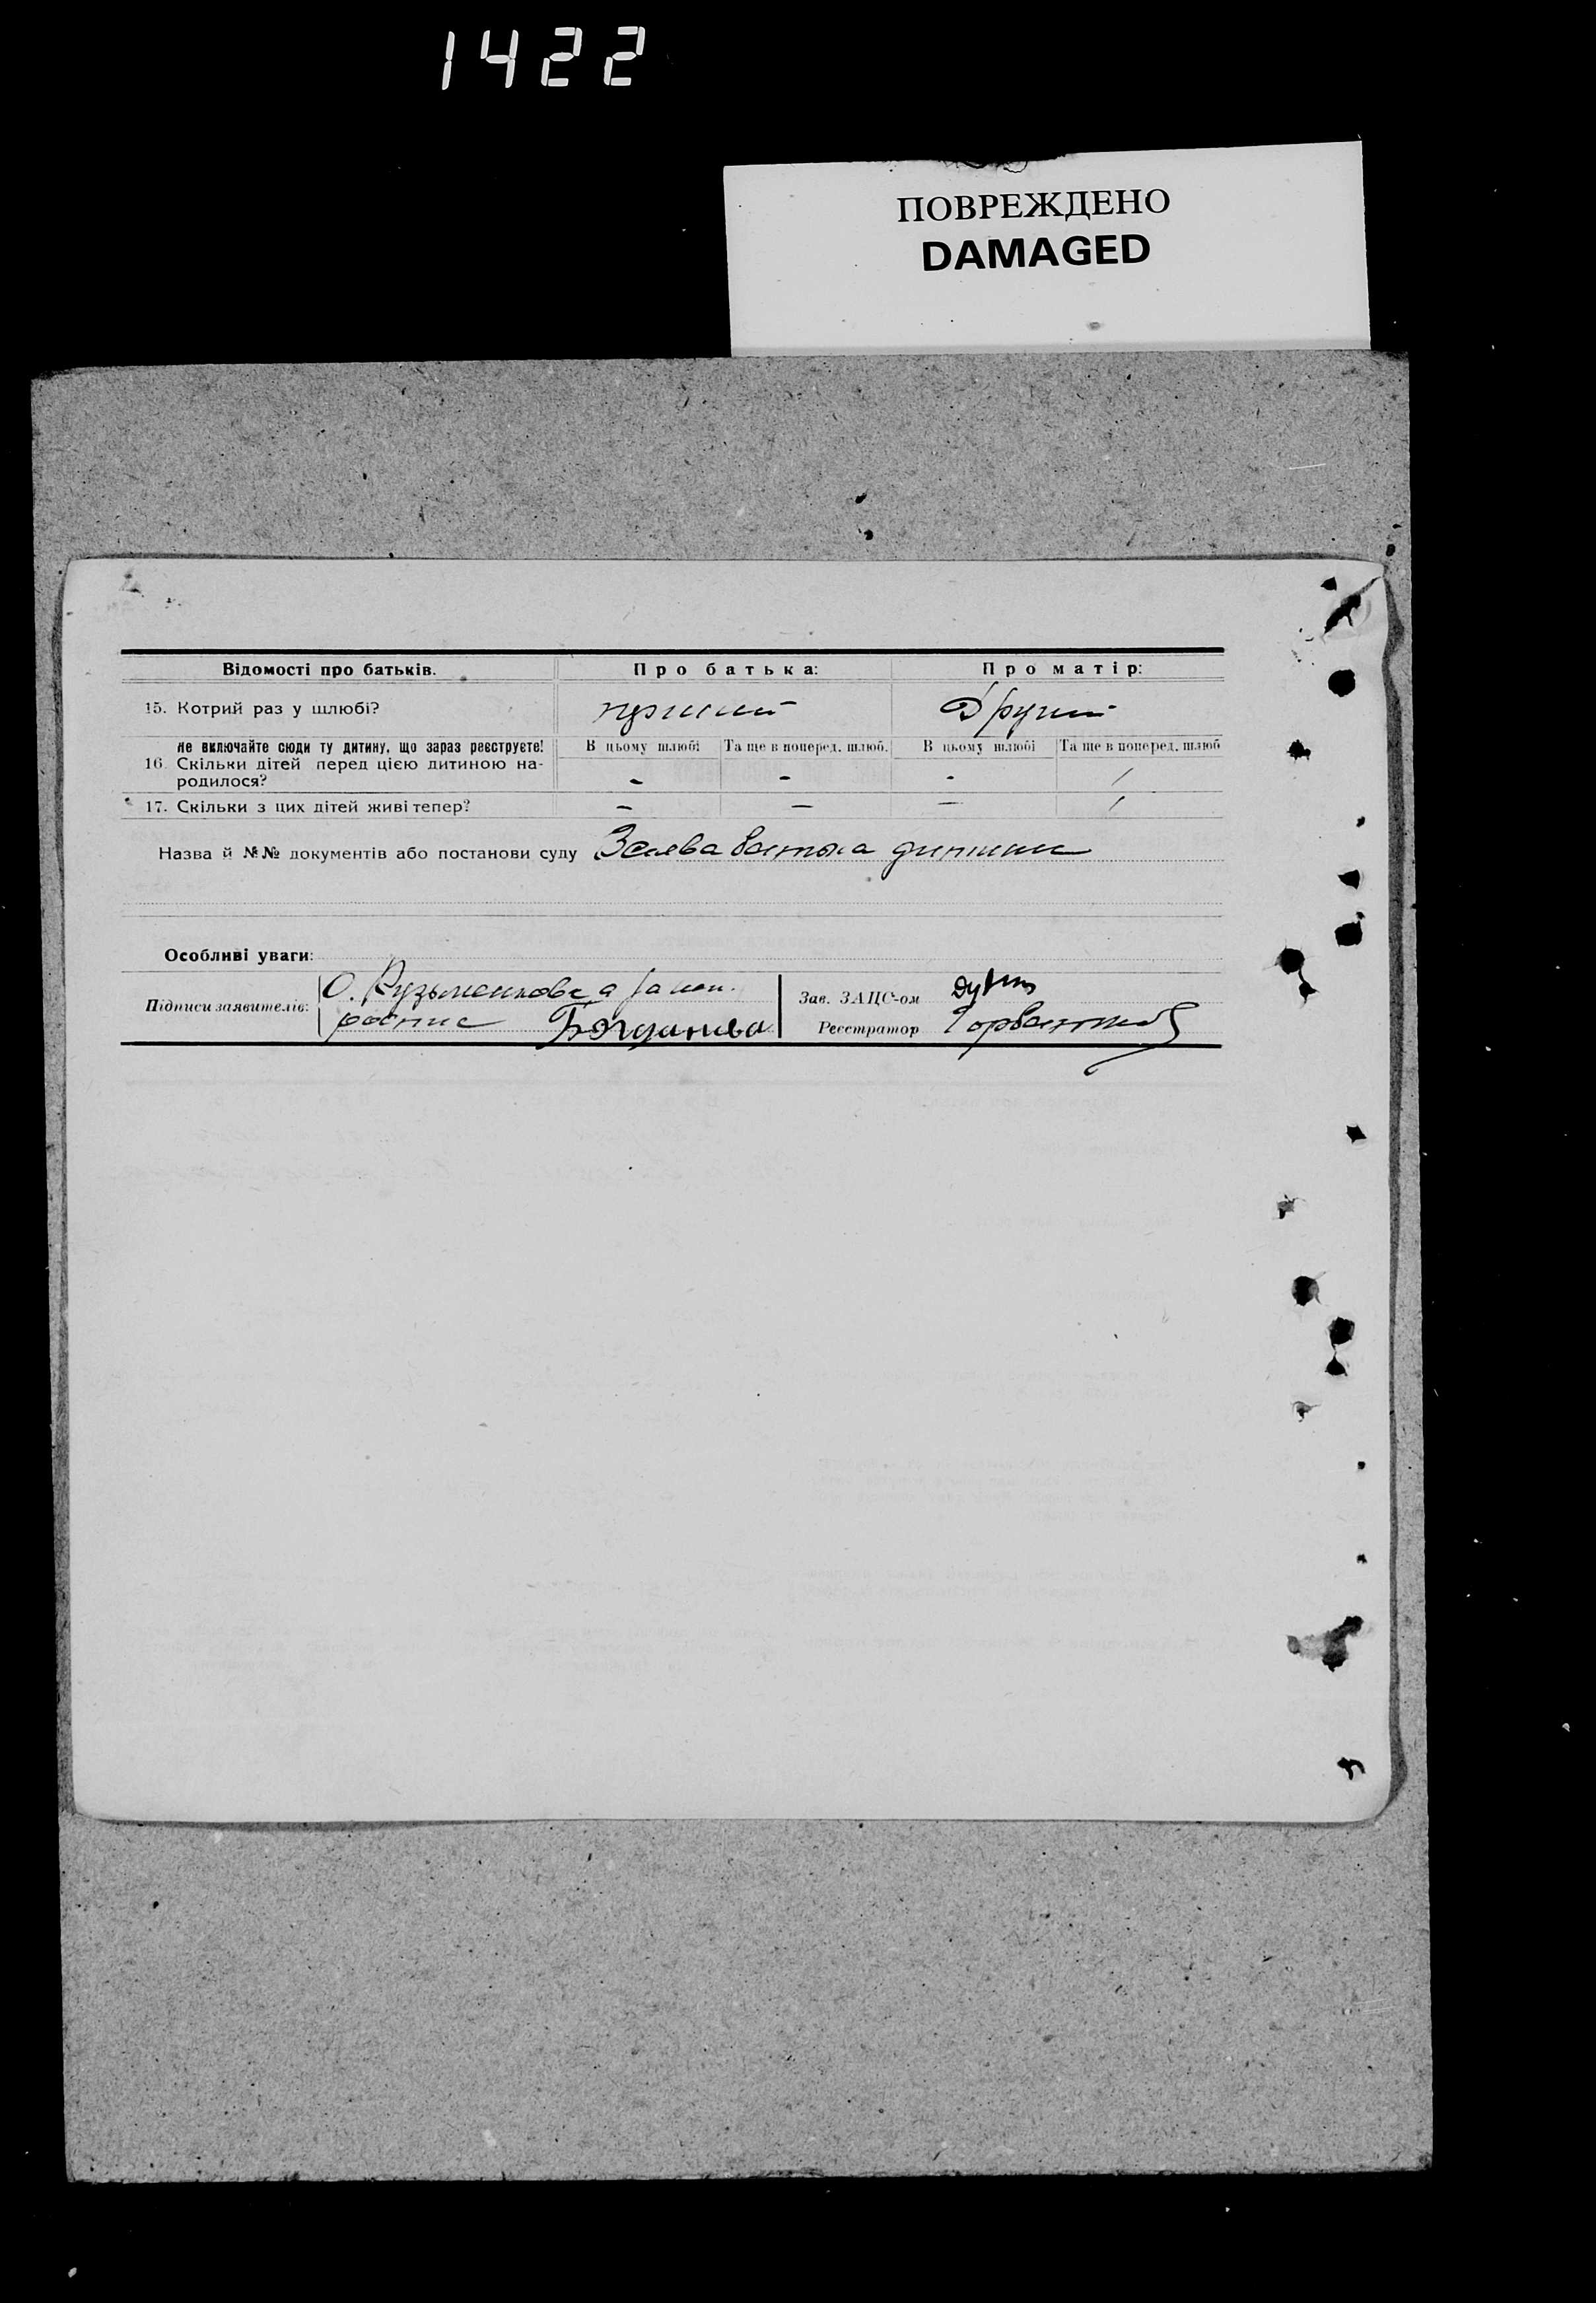 1422
ПОВРЕЖДЕНО
DAMAGED
Відомості про батьків. Про батька: Про матір:
15. Котрий раз у шлюбі? Другий
не включайте сюди ту дитину, що зараз реєструєте! В цьому шлюбі Та ще в поперед. шлюб. В цьому шлюбі Та ще в поперед. шлюб
16. Скільки дітей перед цією дитиною на-
родилося? - - - 1
17. Скільки з цих дітей живі тепер? - - - 1
Назва й №№ документів або постанови суду Заява батька дитини
Особливі уваги:
Підписи заявителів: О. Кузьменкова
роспис Богданова
Зав. ЗАЦС-ом
Реєстратор